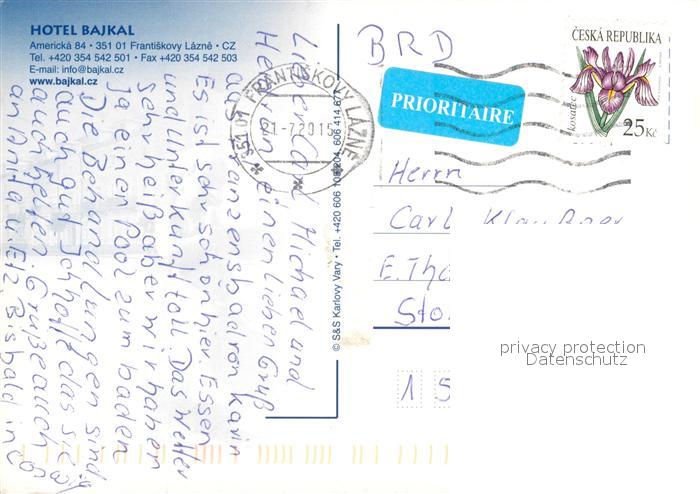 HOTEL BAJKAL
Americká 84 • 351 01 Františkovy Lázně • CZ
Tel. +420 354 542 501 • Fax +420 354 542 503
E-mail: info@bajkal.cz
www.bajkal.cz
Lieber Carl Michael und
Herrn einen lieben Gruß
aus Franzensbad von Karin
Es ist sehr schön hier. Essen
und Unterkunft toll. Das Wetter
sehr heiß aber wir haben
Ja einen Pool zum baden
Die Behandlungen sind
auch gut Ich hoffe das sie
auch helfen. Grüße auch
an Anita u. Bis bald in
351 01 FRANTIŠKOVY LÁZNĚ
21.-7.2015
© S&S Karlovy Vary • Tel. +420 606 109 204, 606 414 67
BRD
PRIORITAIRE
ČESKÁ REPUBLIKA
kosatec
25 Kč
Herrn
Carl Klaus
E. Tho
Sto
1 5
privacy protection
Datenschutz